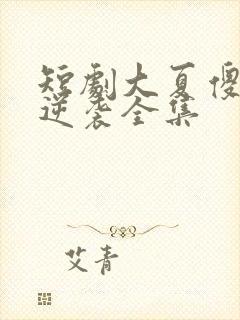 短劇大夏傻
逆袭全集
艾青